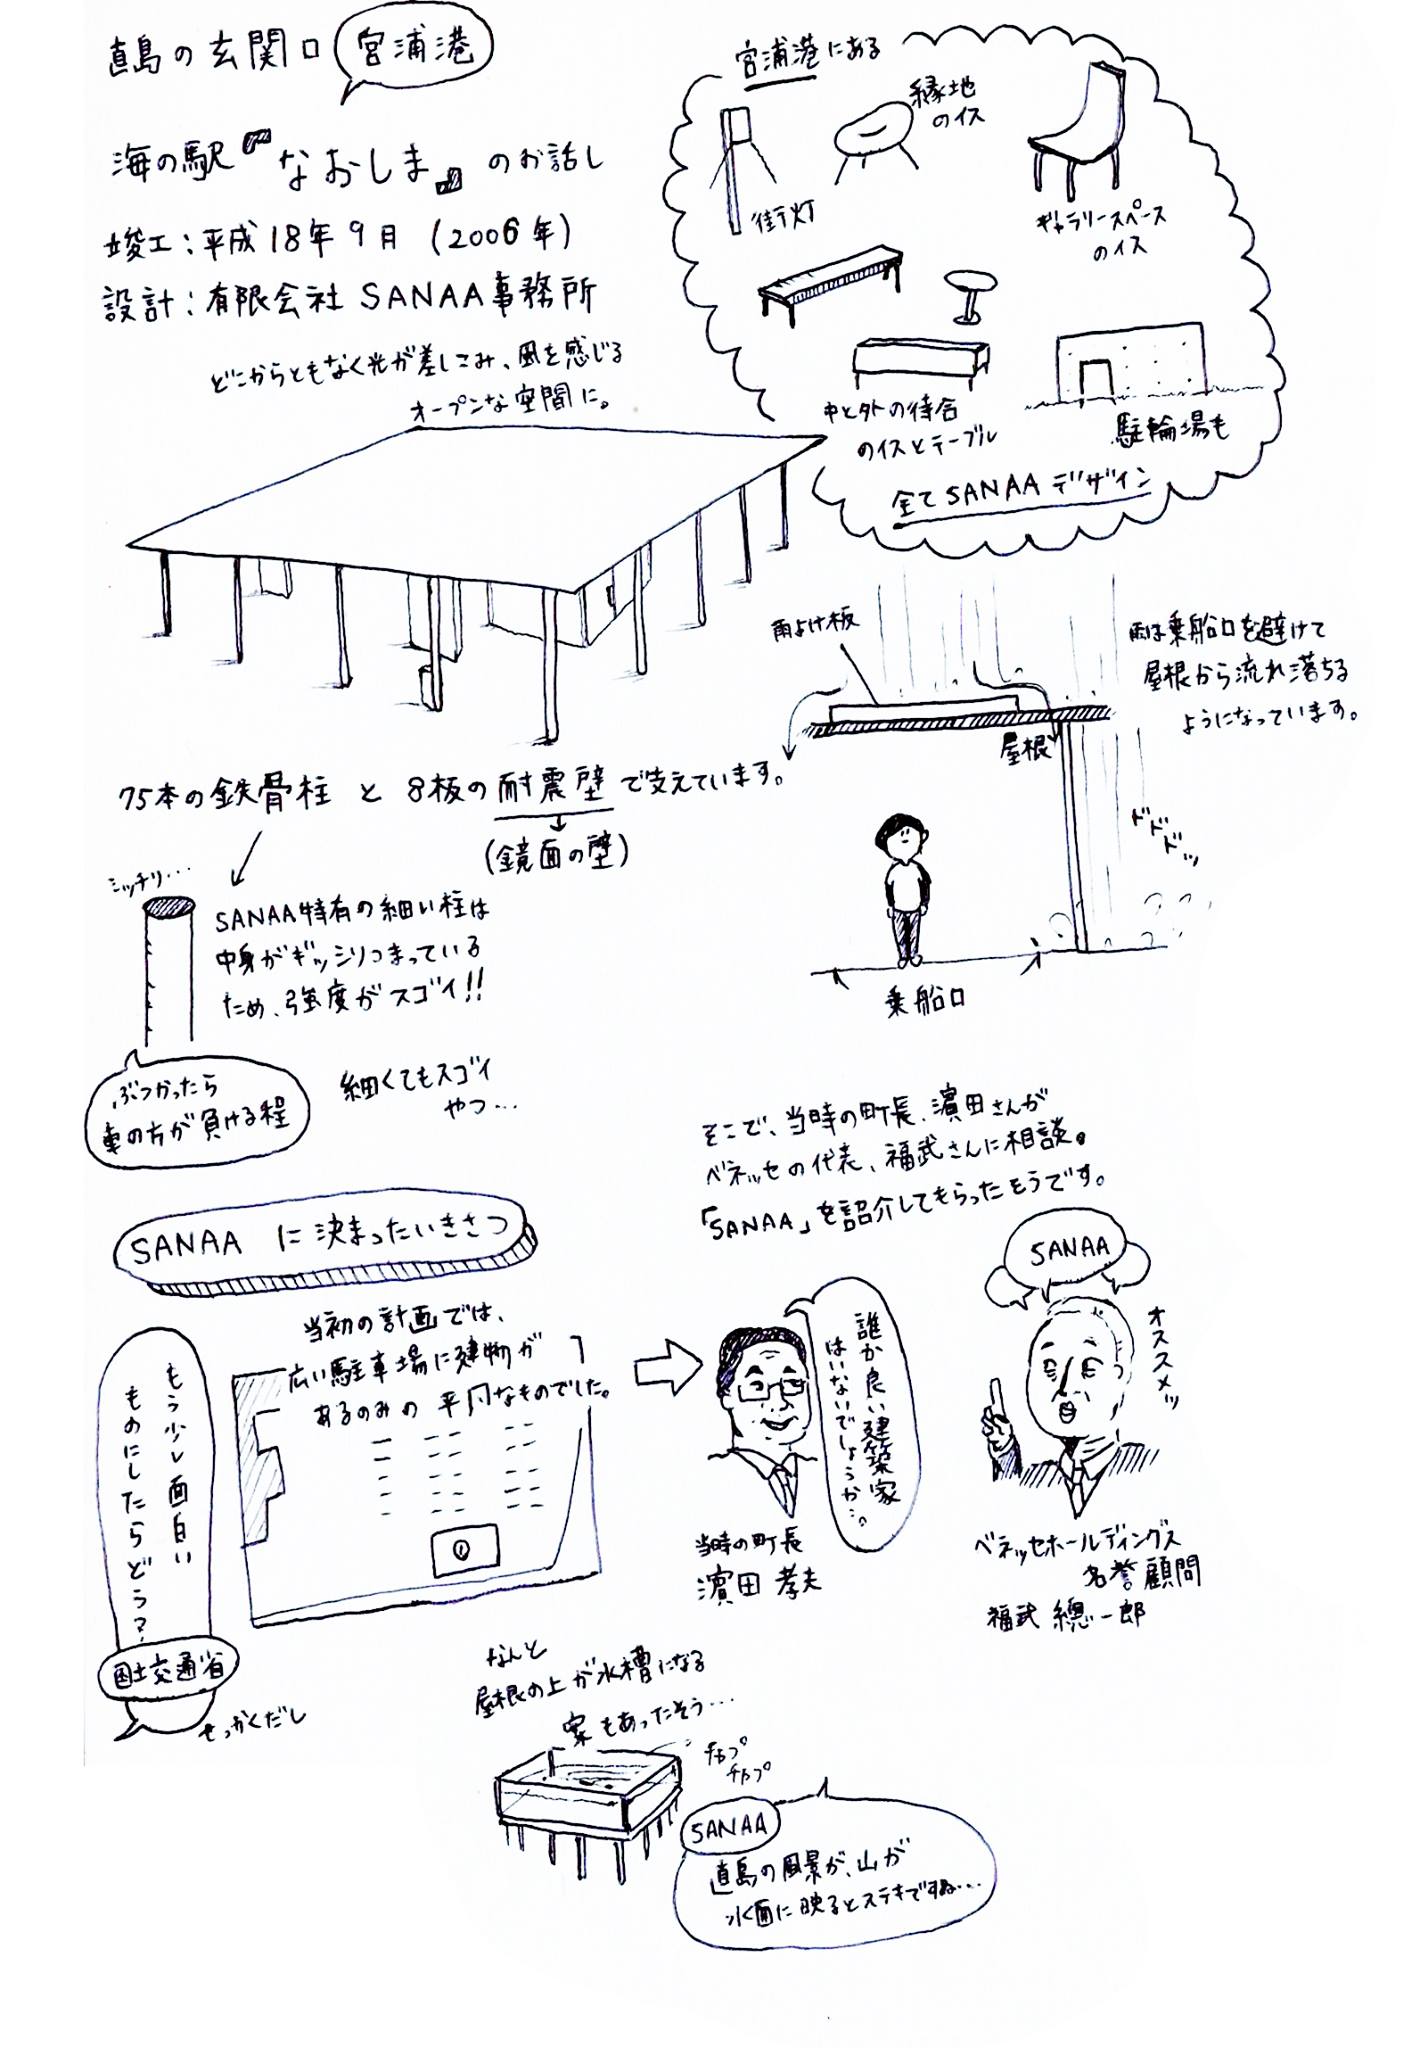 直島の玄関口 宮浦港
海の駅『なおしま』のお話し
竣工：平成18年9月（2006年）
設計：有限会社SANAA事務所
どこからともなく光が差しこみ、風を感じる
オープンな空間に。
宮浦港にある
街灯
縁地
のイス
ギャラリースペース
のイス
中と外の待合
のイスとテーブル
駐輪場も
全てSANAAデザイン
雨よけ板
雨は乗船口を避けて
屋根から流れ落ちる
ようになっています。
屋根
ドドドドッ
乗船口
75本の鉄骨柱と8板の耐震壁で支えています。
（鏡面の壁）
ミッチリ…
SANAA特有の細い柱は
中身がギッシリつまっている
ため、強度がスゴイ!!
ぶつかったら
車の方が負ける程
細くてもスゴイ
やつ…
SANAAに決まったいきさつ
当初の計画では、
広い駐車場に建物が
あるのみの平凡なものでした。
もう少し面白い
ものにしたらどう？
国土交通省
せっかくだし
そこで、当時の町長、濱田さんが
ベネッセの代表、福武さんに相談。
「SANAA」を紹介してもらったそうです。
誰か良い建築家
はいないでしょうか…。
当時の町長
濱田 孝夫
SANAA
オススメッ
ベネッセホールディングス
名誉顧問
福武 總一郎
なんと
屋根の上が水槽になる
案もあったそう…
チャプ
チャプ
SANAA
直島の風景が、山が
水面に映るとステキですね…